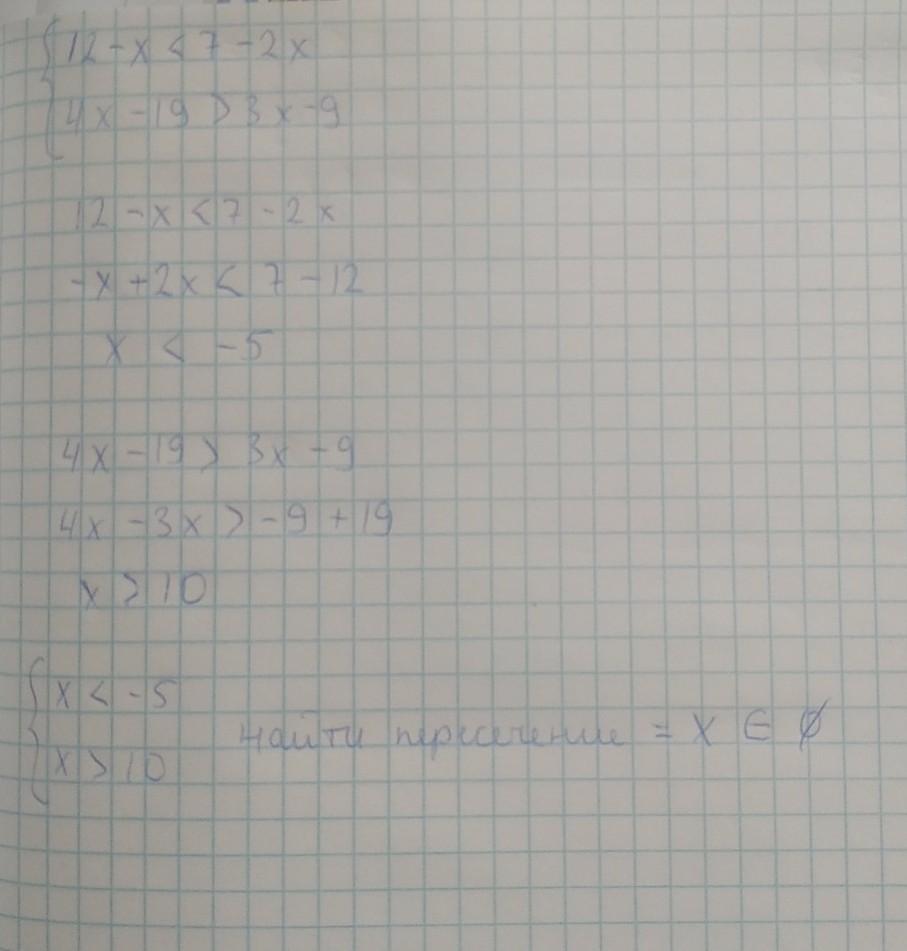 { 12 - x < 7 - 2x
4x - 19 > 3x - 9
12 - x < 7 - 2x
-x + 2x < 7 - 12
x < -5
4x - 19 > 3x - 9
4x - 3x > -9 + 19
x > 10
{ x < -5
x > 10
найти пересечение = x ∈ ∅